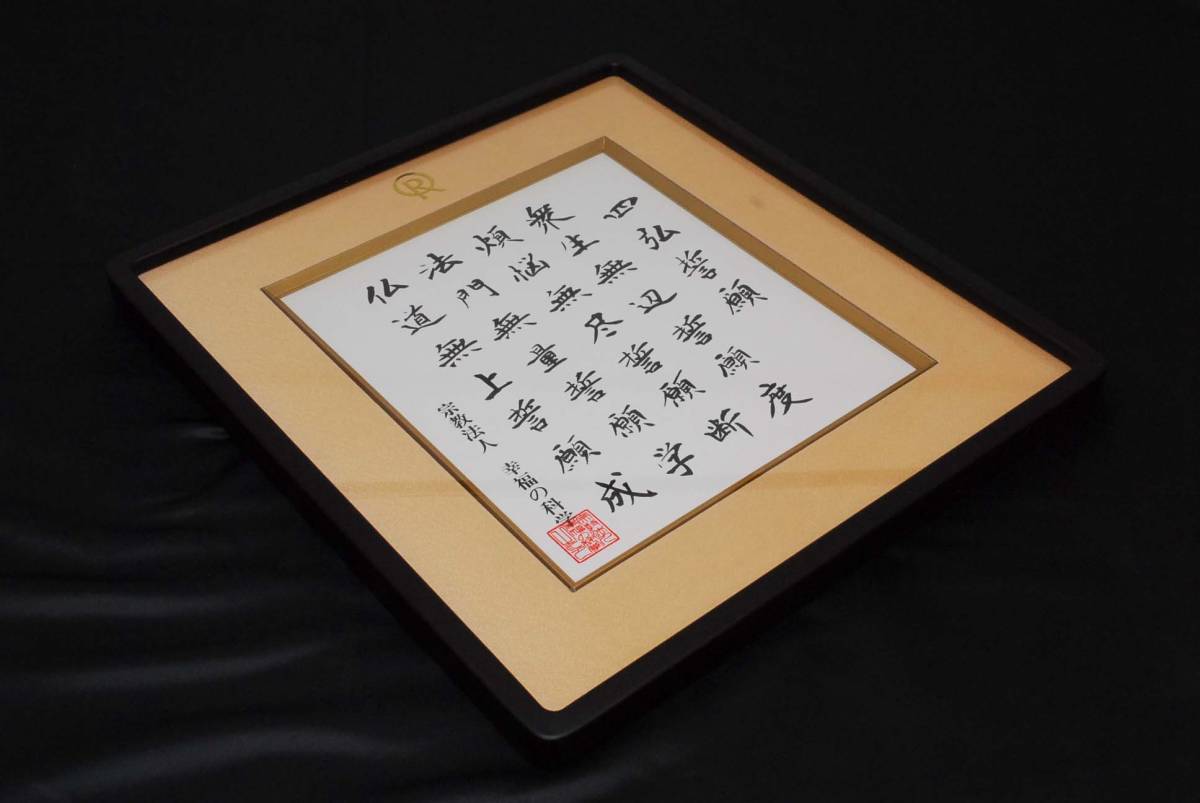 四弘誓願
衆生無辺誓願度
煩悩無尽誓願断
法門無量誓願学
仏道無上誓願成
宗教法人 幸福の科学